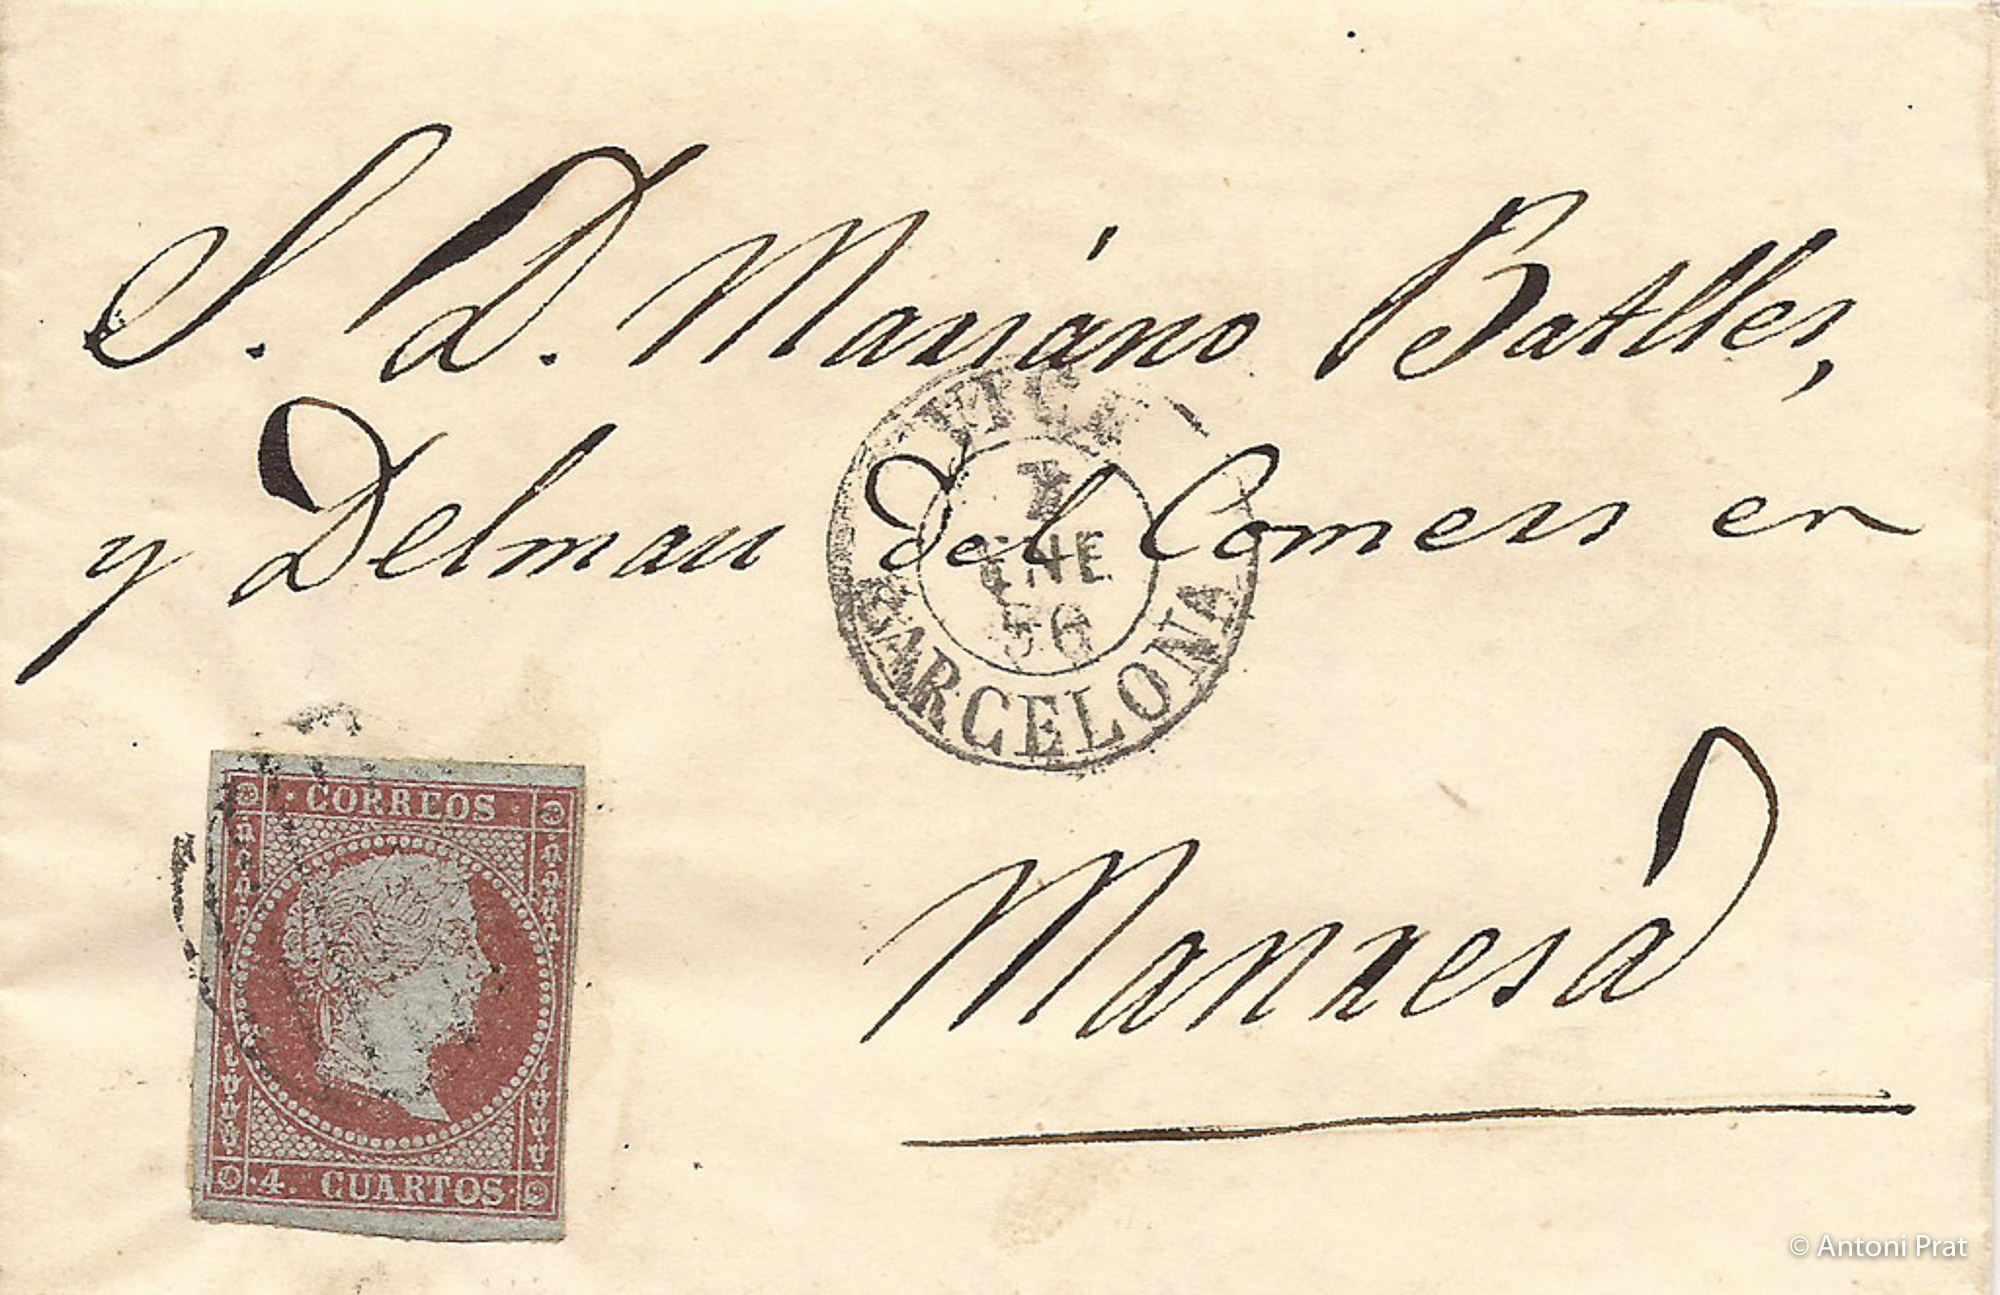 S. D. Mariano Batlles,
y Delmau del Comers en
Manresa
VICH
1
ENE
56
BARCELONA
CORREOS
4. CUARTOS
© Antoni Prat